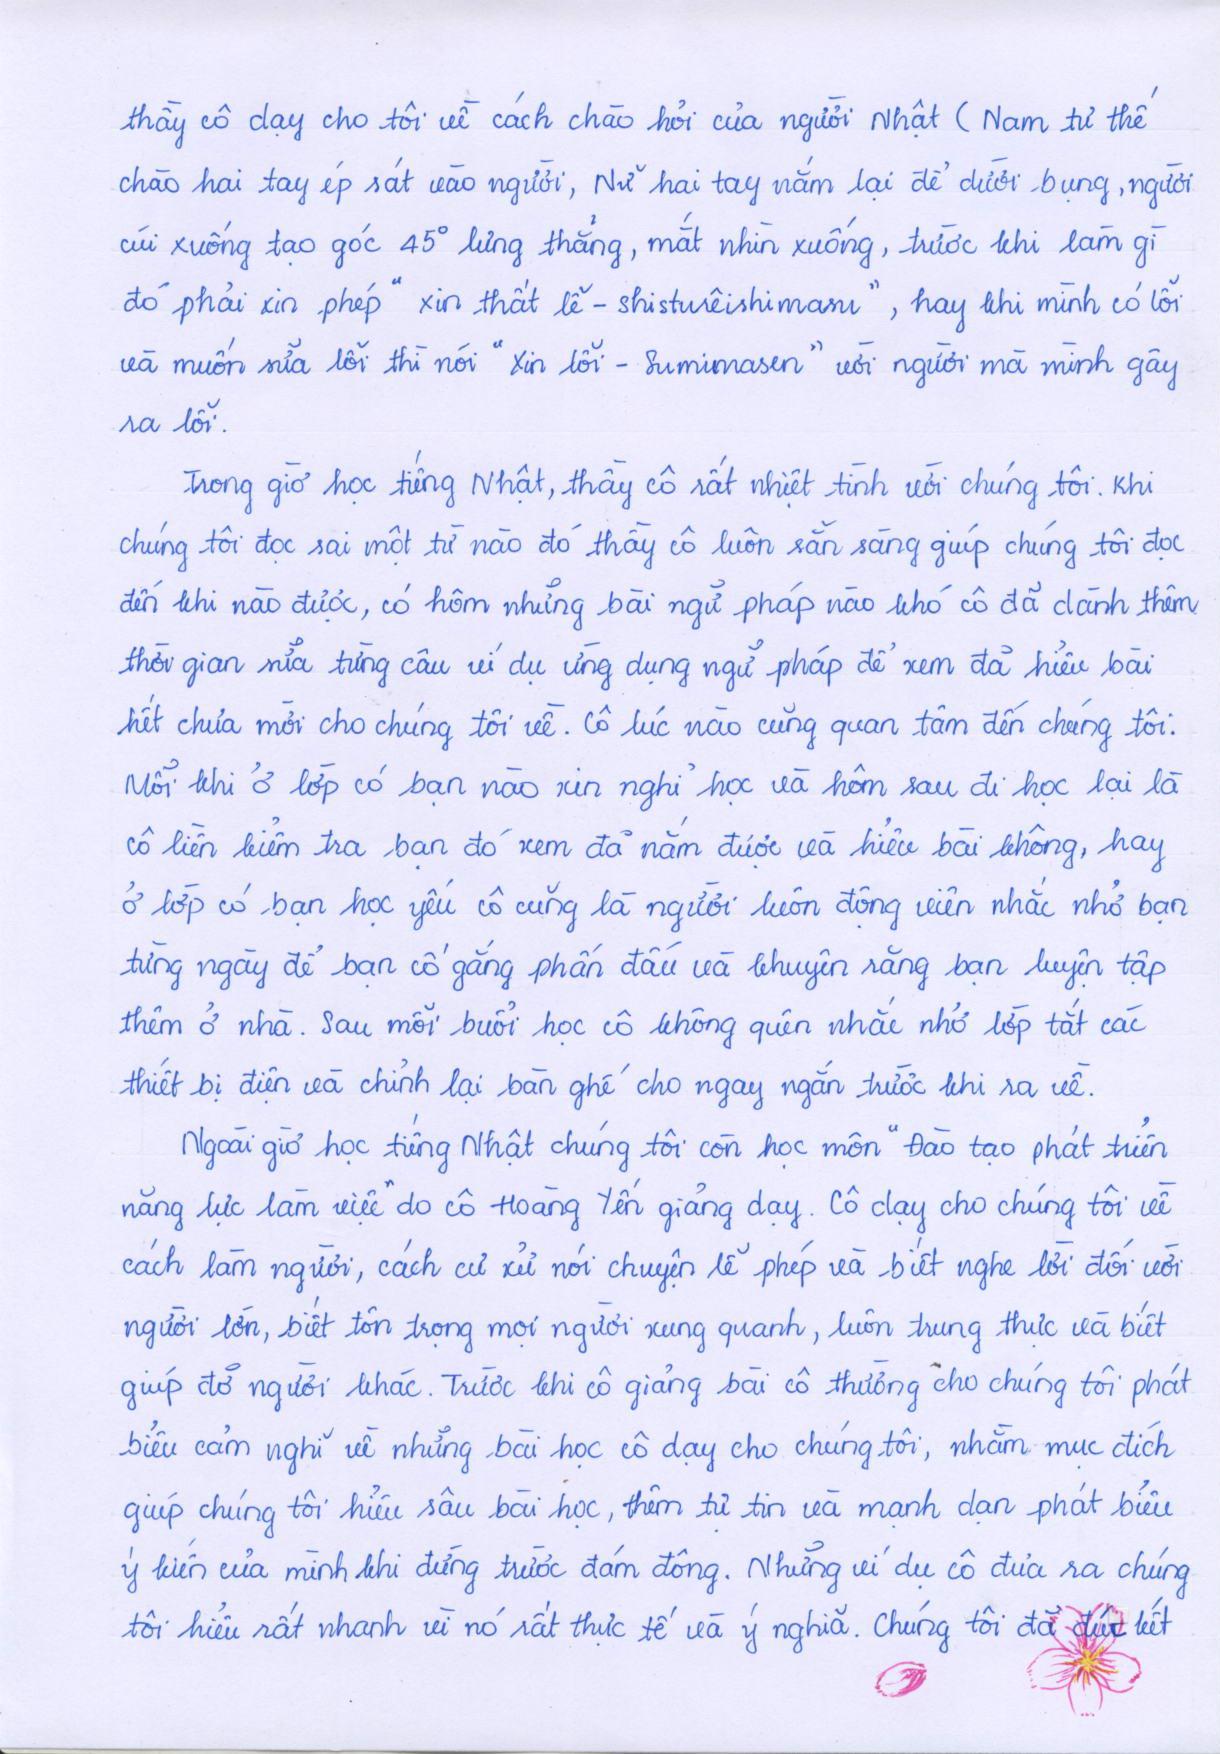 thầy cô dạy cho tôi về cách chào hỏi của người Nhật ( Nam tư thế
chào hai tay ép sát vào người, Nữ hai tay nắm lại để dưới bụng, người
cúi xuống tạo góc 45° lưng thẳng, mắt nhìn xuống, trước khi làm gì
đó phải xin phép " xin thất lễ - shistureishimasu", hay khi mình có lỗi
và muốn sửa lỗi thì nói "Xin lỗi - Sumimasen" với người mà mình gây
ra lỗi.
Trong giờ học tiếng Nhật, thầy cô rất nhiệt tình với chúng tôi. Khi
chúng tôi đọc sai một từ nào đó thầy cô luôn sẵn sàng giúp chúng tôi đọc
đến khi nào được, có hôm những bài ngữ pháp nào khó cô đã dành thêm
thời gian sửa từng câu ví dụ ứng dụng ngữ pháp để xem đã hiểu bài
hết chưa mới cho chúng tôi về. Cô lúc nào cũng quan tâm đến chúng tôi.
Mỗi khi ở lớp có bạn nào xin nghỉ học và hôm sau đi học lại là
cô liền kiểm tra bạn đó xem đã nắm được và hiểu bài không, hay
ở lớp có bạn học yếu cô cũng là người luôn động viên nhắc nhở bạn
từng ngày để bạn cố gắng phấn đấu và khuyên răng bạn luyện tập
thêm ở nhà. Sau mỗi buổi học cô không quên nhắc nhở lớp tắt các
thiết bị điện và chỉnh lại bàn ghế cho ngay ngắn trước khi ra về.
Ngoài giờ học tiếng Nhật chúng tôi còn học môn "Đào tạo phát triển
năng lực làm việc" do cô Hoàng Yến giảng dạy. Cô dạy cho chúng tôi về
cách làm người, cách cư xử nói chuyện lễ phép và biết nghe lời đối với
người lớn, biết tôn trọng mọi người xung quanh, luôn trung thực và biết
giúp đỡ người khác. Trước khi cô giảng bài cô thường cho chúng tôi phát
biểu cảm nghĩ về những bài học cô dạy cho chúng tôi, nhằm mục đích
giúp chúng tôi hiểu sâu bài học, thêm tự tin và mạnh dạn phát biểu
ý kiến của mình khi đứng trước đám đông. Những ví dụ cô đưa ra chúng
tôi hiểu rất nhanh vì nó rất thực tế và ý nghĩa. Chúng tôi đã đúc kết